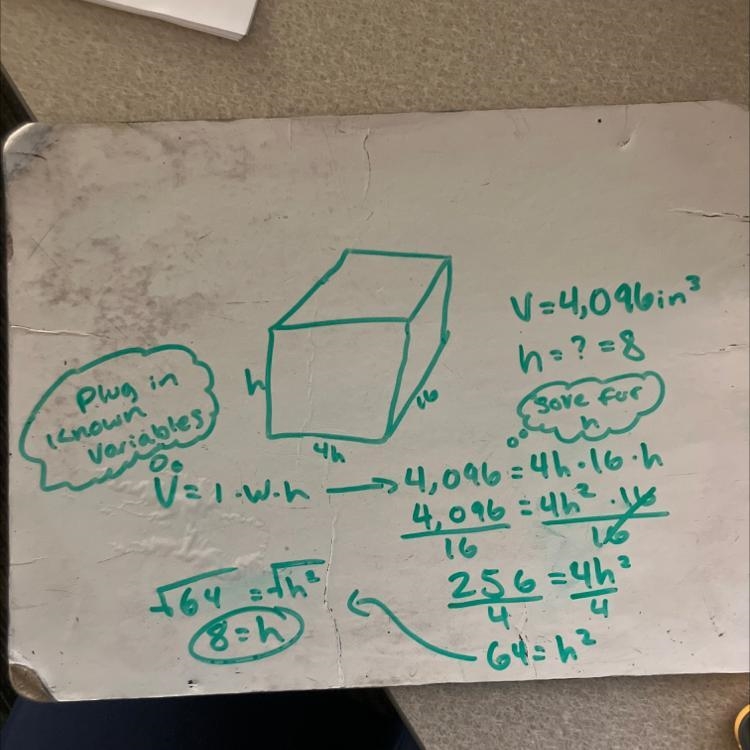 V=4,096in³
h=?=8
Plug in
known
variables
h
16
4h
Solve for
h
V=l·w·h → 4,096=4h·16·h
4,096/16 = 4h²·16/16
256/4 = 4h²/4
64=h²
√64 = √h²
8=h